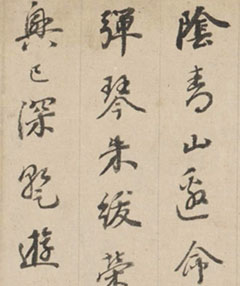 陰青山邀命
彈琴朱紱榮
興已深遊